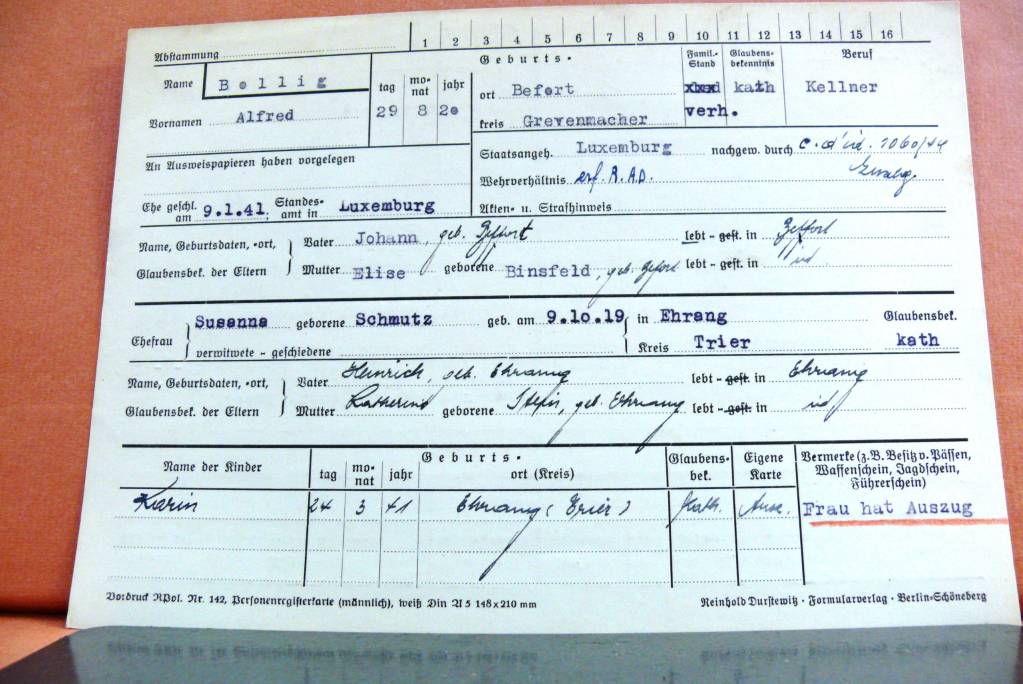 Abstammung 1 2 3 4 5 6 7 8 9 10 11 12 13 14 15 16
Name Bollig tag monat jahr Geburts- Famil.-Stand Glaubensbekenntnis Beruf
ort Befort xxxd kath Kellner
Vornamen Alfred 29 8 20 kreis Grevenmacher verh.
An Ausweispapieren haben vorgelegen
Staatsangeh. Luxemburg nachgew. durch c. d'id. 1060/44
Wehrverhältnis erf. R.A.D.
Ehe geschl. am 9.1.41. Standesamt in Luxemburg Akten- u. Strafhinweis
Name, Geburtsdaten, -ort, Vater Johann, geb. Beffort lebt - gest. in Beffort
Glaubensbek. der Eltern Mutter Elise geborene Binsfeld, geb. Befort lebt - gest. in id
Ehefrau Susanna geborene Schmutz geb. am 9.10.19 in Ehrang Glaubensbek.
verwitwete - geschiedene Kreis Trier kath
Name, Geburtsdaten, -ort, Vater Heinrich, geb. Ehrang lebt - gest. in Ehrang
Glaubensbek. der Eltern Mutter Katherina geborene geb. Ehrang lebt - gest. in id
Name der Kinder Geburts- tag monat jahr ort (Kreis) Glaubensbek. Eigene Karte Vermerke (z.B. Besitz v. Pässen, Waffenschein, Jagdschein, Führerschein)
Karin 24 3 41 Ehrang (Trier) Kath. Frau hat Auszug
Vordruck RPol. Nr. 142, Personenregisterkarte (männlich), weiß Din A 5 148x210 mm Reinhold Durstewitz · Formularverlag · Berlin-Schöneberg